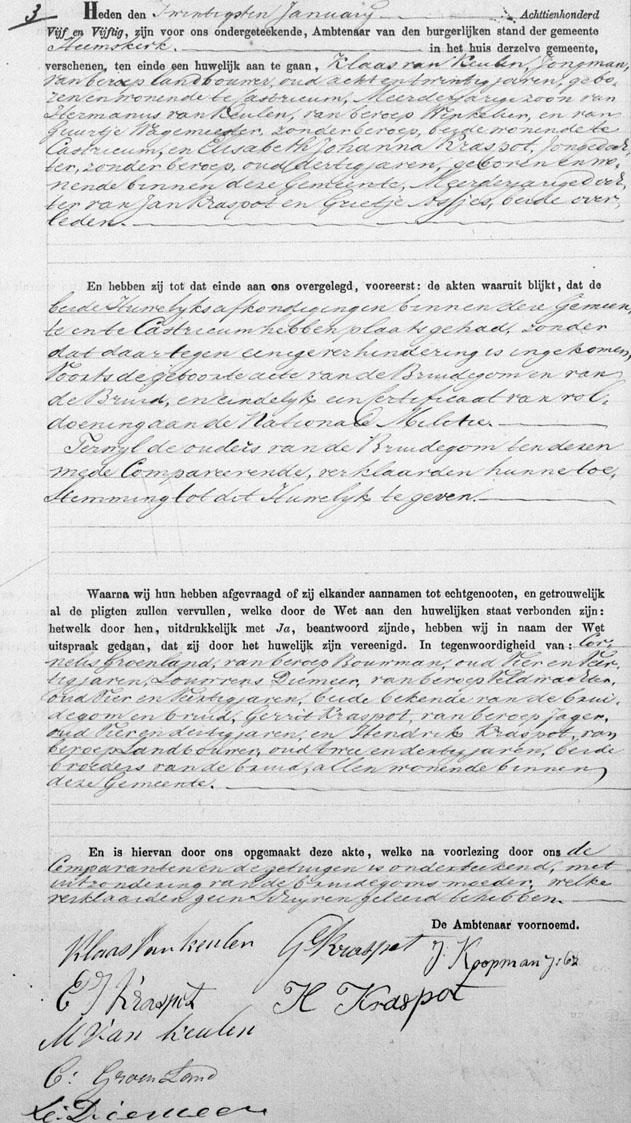 3 Heden den Twintigsten January Achttienhonderd
Vijf en Vijftig, zijn voor ons ondergeteekende, Ambtenaar van den burgerlijken stand der gemeente
Heemskerk in het huis derzelve gemeente,
verschenen, ten einde een huwelijk aan te gaan, Klaas van Keulen, Jongman,
van beroep landbouwer, oud acht en twintig jaren, gebo-
ren en wonende te Castricum, Meerderjarige zoon van
Hermanus van Keulen, van beroep Winkelier, en van
Guurtje Wagemeester, zonder beroep, beide wonende te
Castricum, en Elisabeth Johanna Kraspot, Jongedoch-
ter, zonder beroep, oud dertig jaren, geboren en wo-
nende binnen deze Gemeente, Meerderjarige doch-
ter van Jan Kraspot en Grietje, beide over-
leden.
En hebben zij tot dat einde aan ons overgelegd, vooreerst: de akten waaruit blijkt, dat de
beide Huwelyks afkondigingen binnen deze Gemeen-
te en te Castricum hebben plaats gehad, zonder
dat daar tegen eenige verhindering is ingekomen,
Voorts de geboorte acte van de Bruidegom en van
de Bruid, en eindelyk een certificaat van vol-
doening aan de Nationale Militie.
Terwyl de ouders van de Bruidegom ten dezen
mede Compareerende, verklaarden hunne toe-
stemming tot dit Huwelyk te geven.
Waarna wij hun hebben afgevraagd of zij elkander aannamen tot echtgenooten, en getrouwelijk
al de pligten zullen vervullen, welke door de Wet aan den huwelijken staat verbonden zijn:
hetwelk door hen, uitdrukkelijk met Ja, beantwoord zijnde, hebben wij in naam der Wet
uitspraak gedaan, dat zij door het huwelijk zijn vereenigd. In tegenwoordigheid van: Cor-
nelis Groenland, van beroep Bouwman, oud Vier en Veer-
tig jaren, Lourens Diemeer, van beroep Veldwachter,
oud Vier en Veertig jaren, beide bekende van de brui-
degom en bruid, Gerrit Kraspot, van beroep jager,
oud Vier en dertig jaren, en Hendrik Kraspot, van
beroep Landbouwer, oud twee en dertig jaren, beide
broeders van de bruid, allen wonende binnen
deze Gemeente.
En is hiervan door ons opgemaakt deze akte, welke na voorlezing door ons de
Comparanten en de getuigen is onderteekend, met
uitzondering van de bruidegoms moeder, welke
verklaarden geen Schryven geleerd te hebben.
De Ambtenaar voornoemd.
Klaas Van Keulen G Kraspot J. Koopman
E J Kraspot H Kraspot
M Van Keulen
C: Groen Land
L: Diemeer